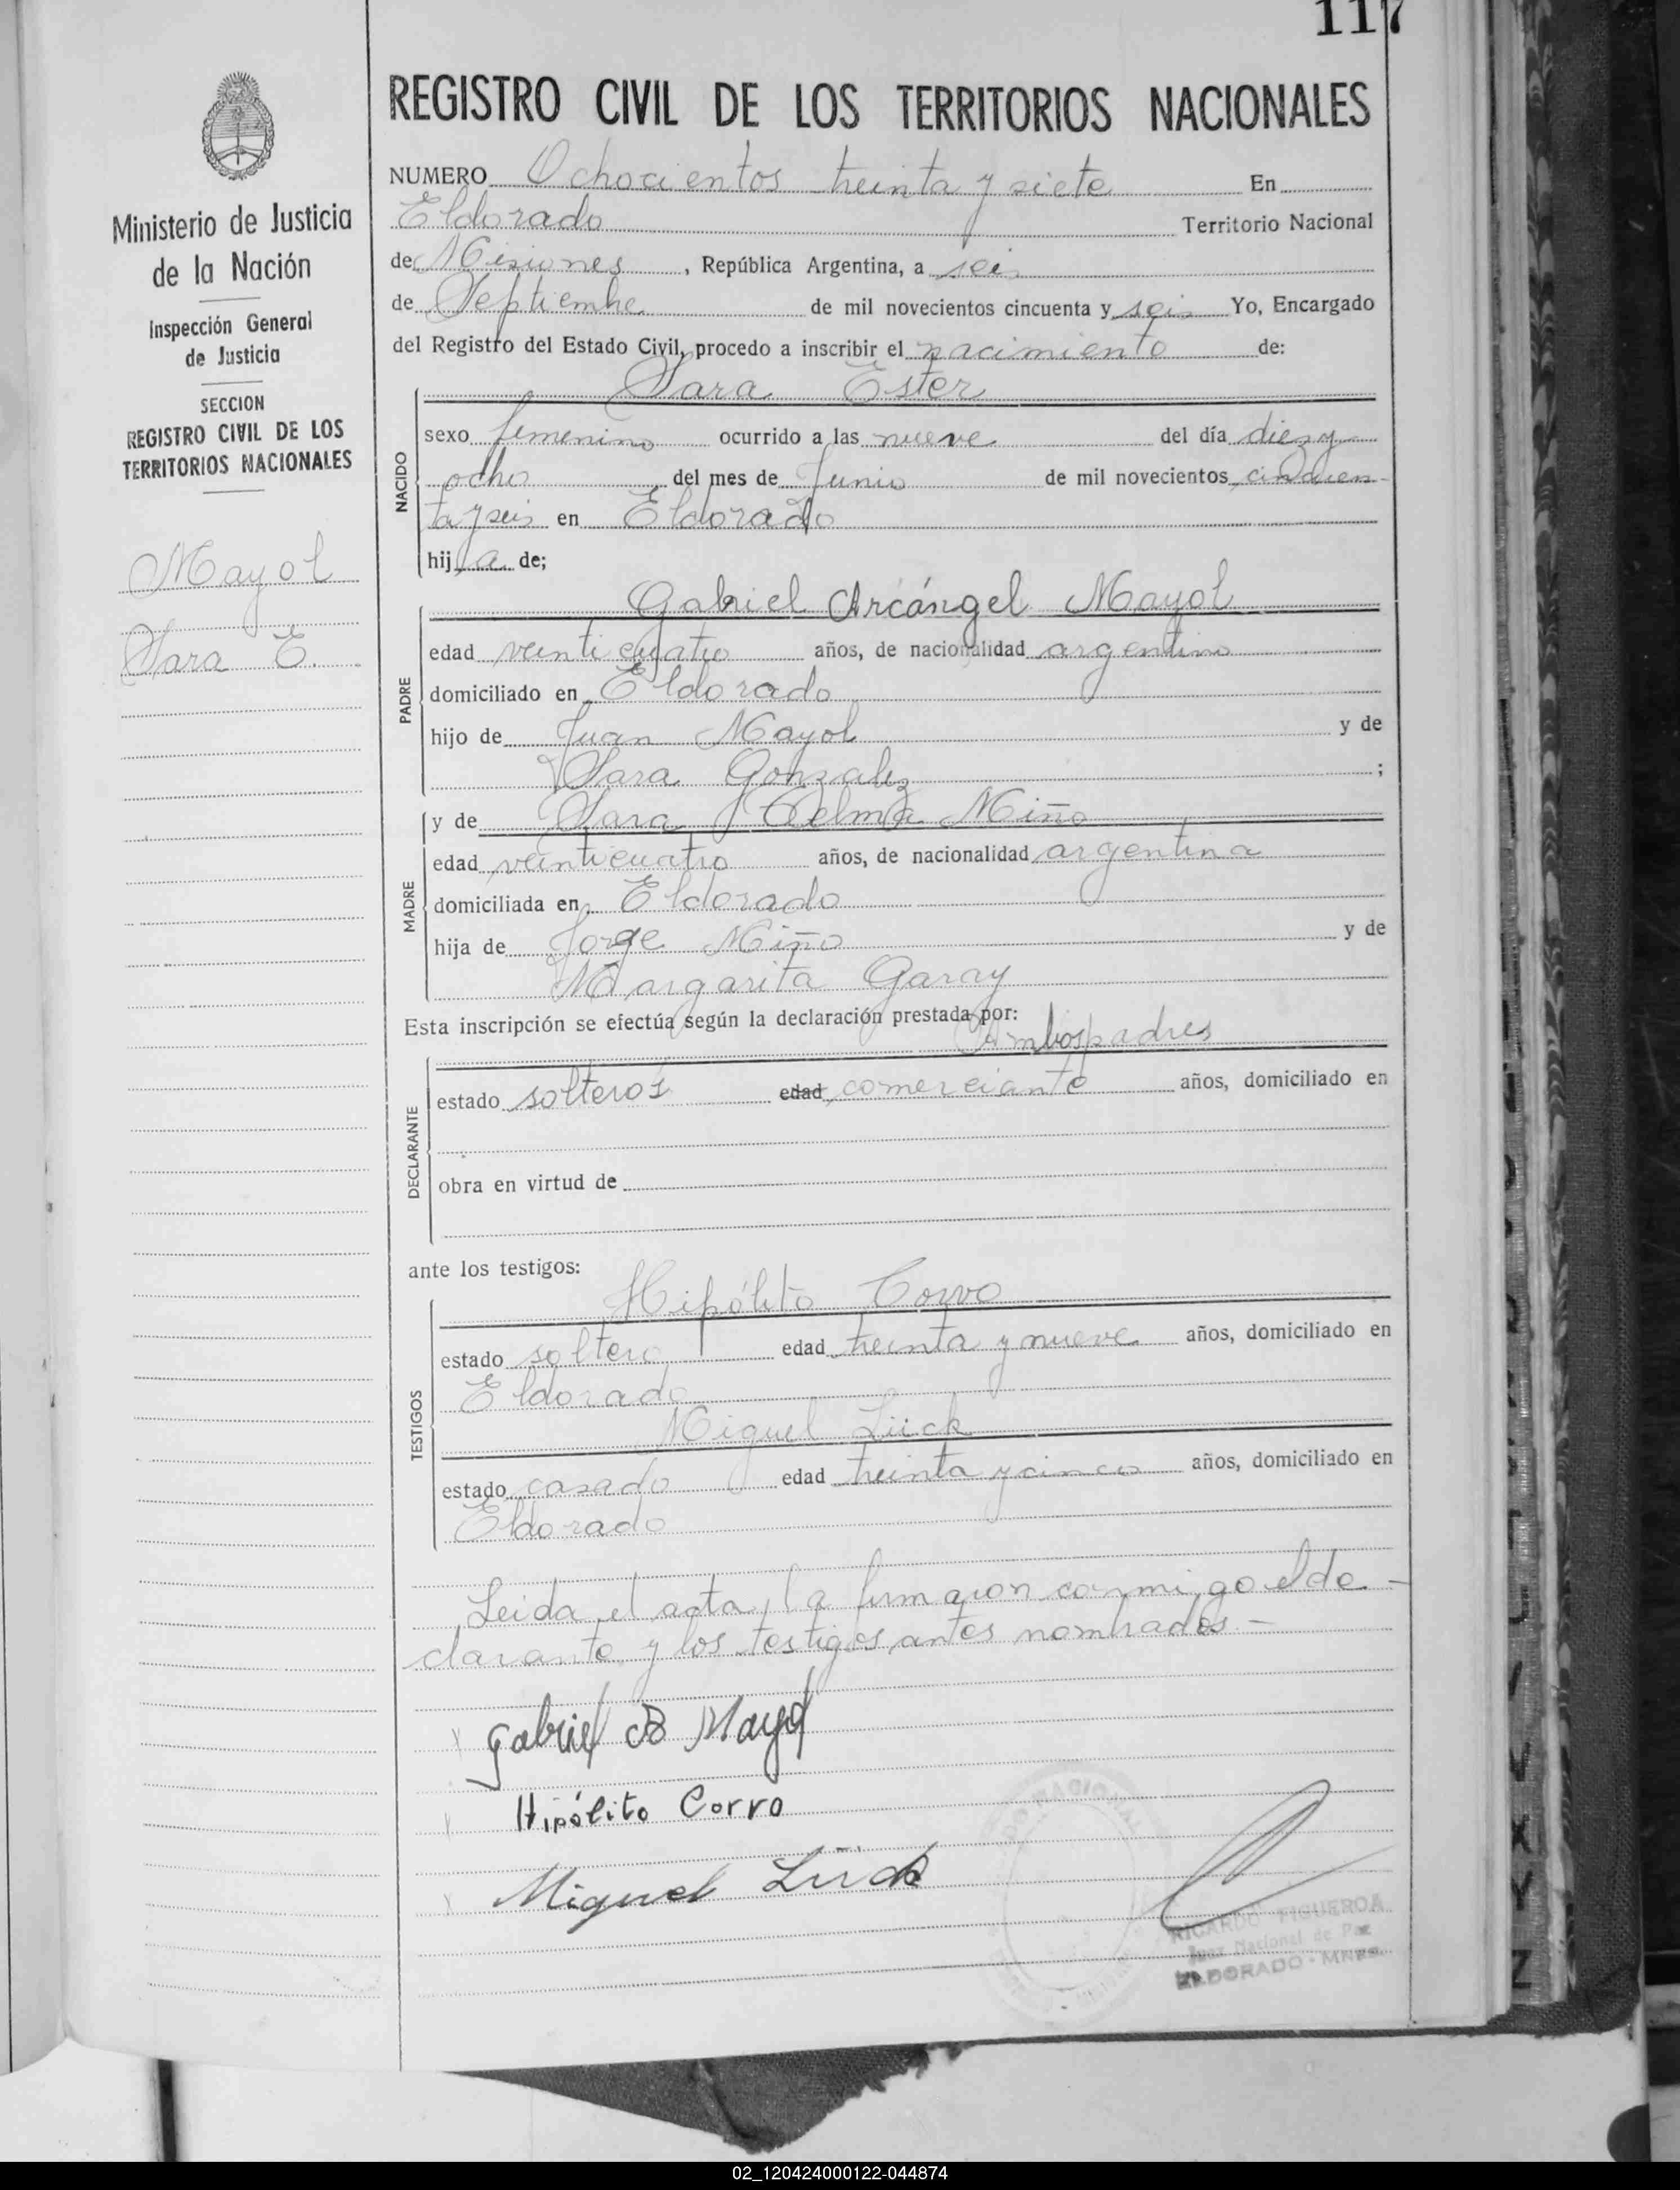 117
REGISTRO CIVIL DE LOS TERRITORIOS NACIONALES
Ministerio de Justicia
de la Nación
Inspección General
de Justicia
SECCION
REGISTRO CIVIL DE LOS
TERRITORIOS NACIONALES
Mayol
Sara E.
NUMERO Ochocientos treinta y siete En
Eldorado Territorio Nacional
de Misiones, República Argentina, a seis
de Septiembre de mil novecientos cincuenta y seis Yo, Encargado
del Registro del Estado Civil, procedo a inscribir el nacimiento de:
NACIDO
Sara Ester
sexo femenino ocurrido a las nueve del día diez y
ocho del mes de Junio de mil novecientos cincuen-
ta y seis en Eldorado
hija de;
PADRE
Gabriel Arcángel Mayol
edad veinticuatro años, de nacionalidad argentino
domiciliado en Eldorado
hijo de Juan Mayol y de
Sara Gonzalez ;
MADRE
y de Sara Telma Miño
edad veinticuatro años, de nacionalidad argentina
domiciliada en Eldorado
hija de Jorge Miño y de
Margarita Garay
Esta inscripción se efectúa según la declaración prestada por:
DECLARANTE
Ambos padres
estado solteros edad comerciante años, domiciliado en
obra en virtud de
ante los testigos:
TESTIGOS
Hipólito Corvo
estado soltero edad treinta y nueve años, domiciliado en
Eldorado
Miguel Lück
estado casado edad treinta y cinco años, domiciliado en
Eldorado
Leida el acta, la firmaron conmigo el de-
clarante y los testigos antes nombrados.-
Gabriel Mayol
Hipólito Corvo
Miguel Lück
RICARDO FIGUEROA
Juez Nacional de Paz
ELDORADO - MNES.
02_120424000122-044874